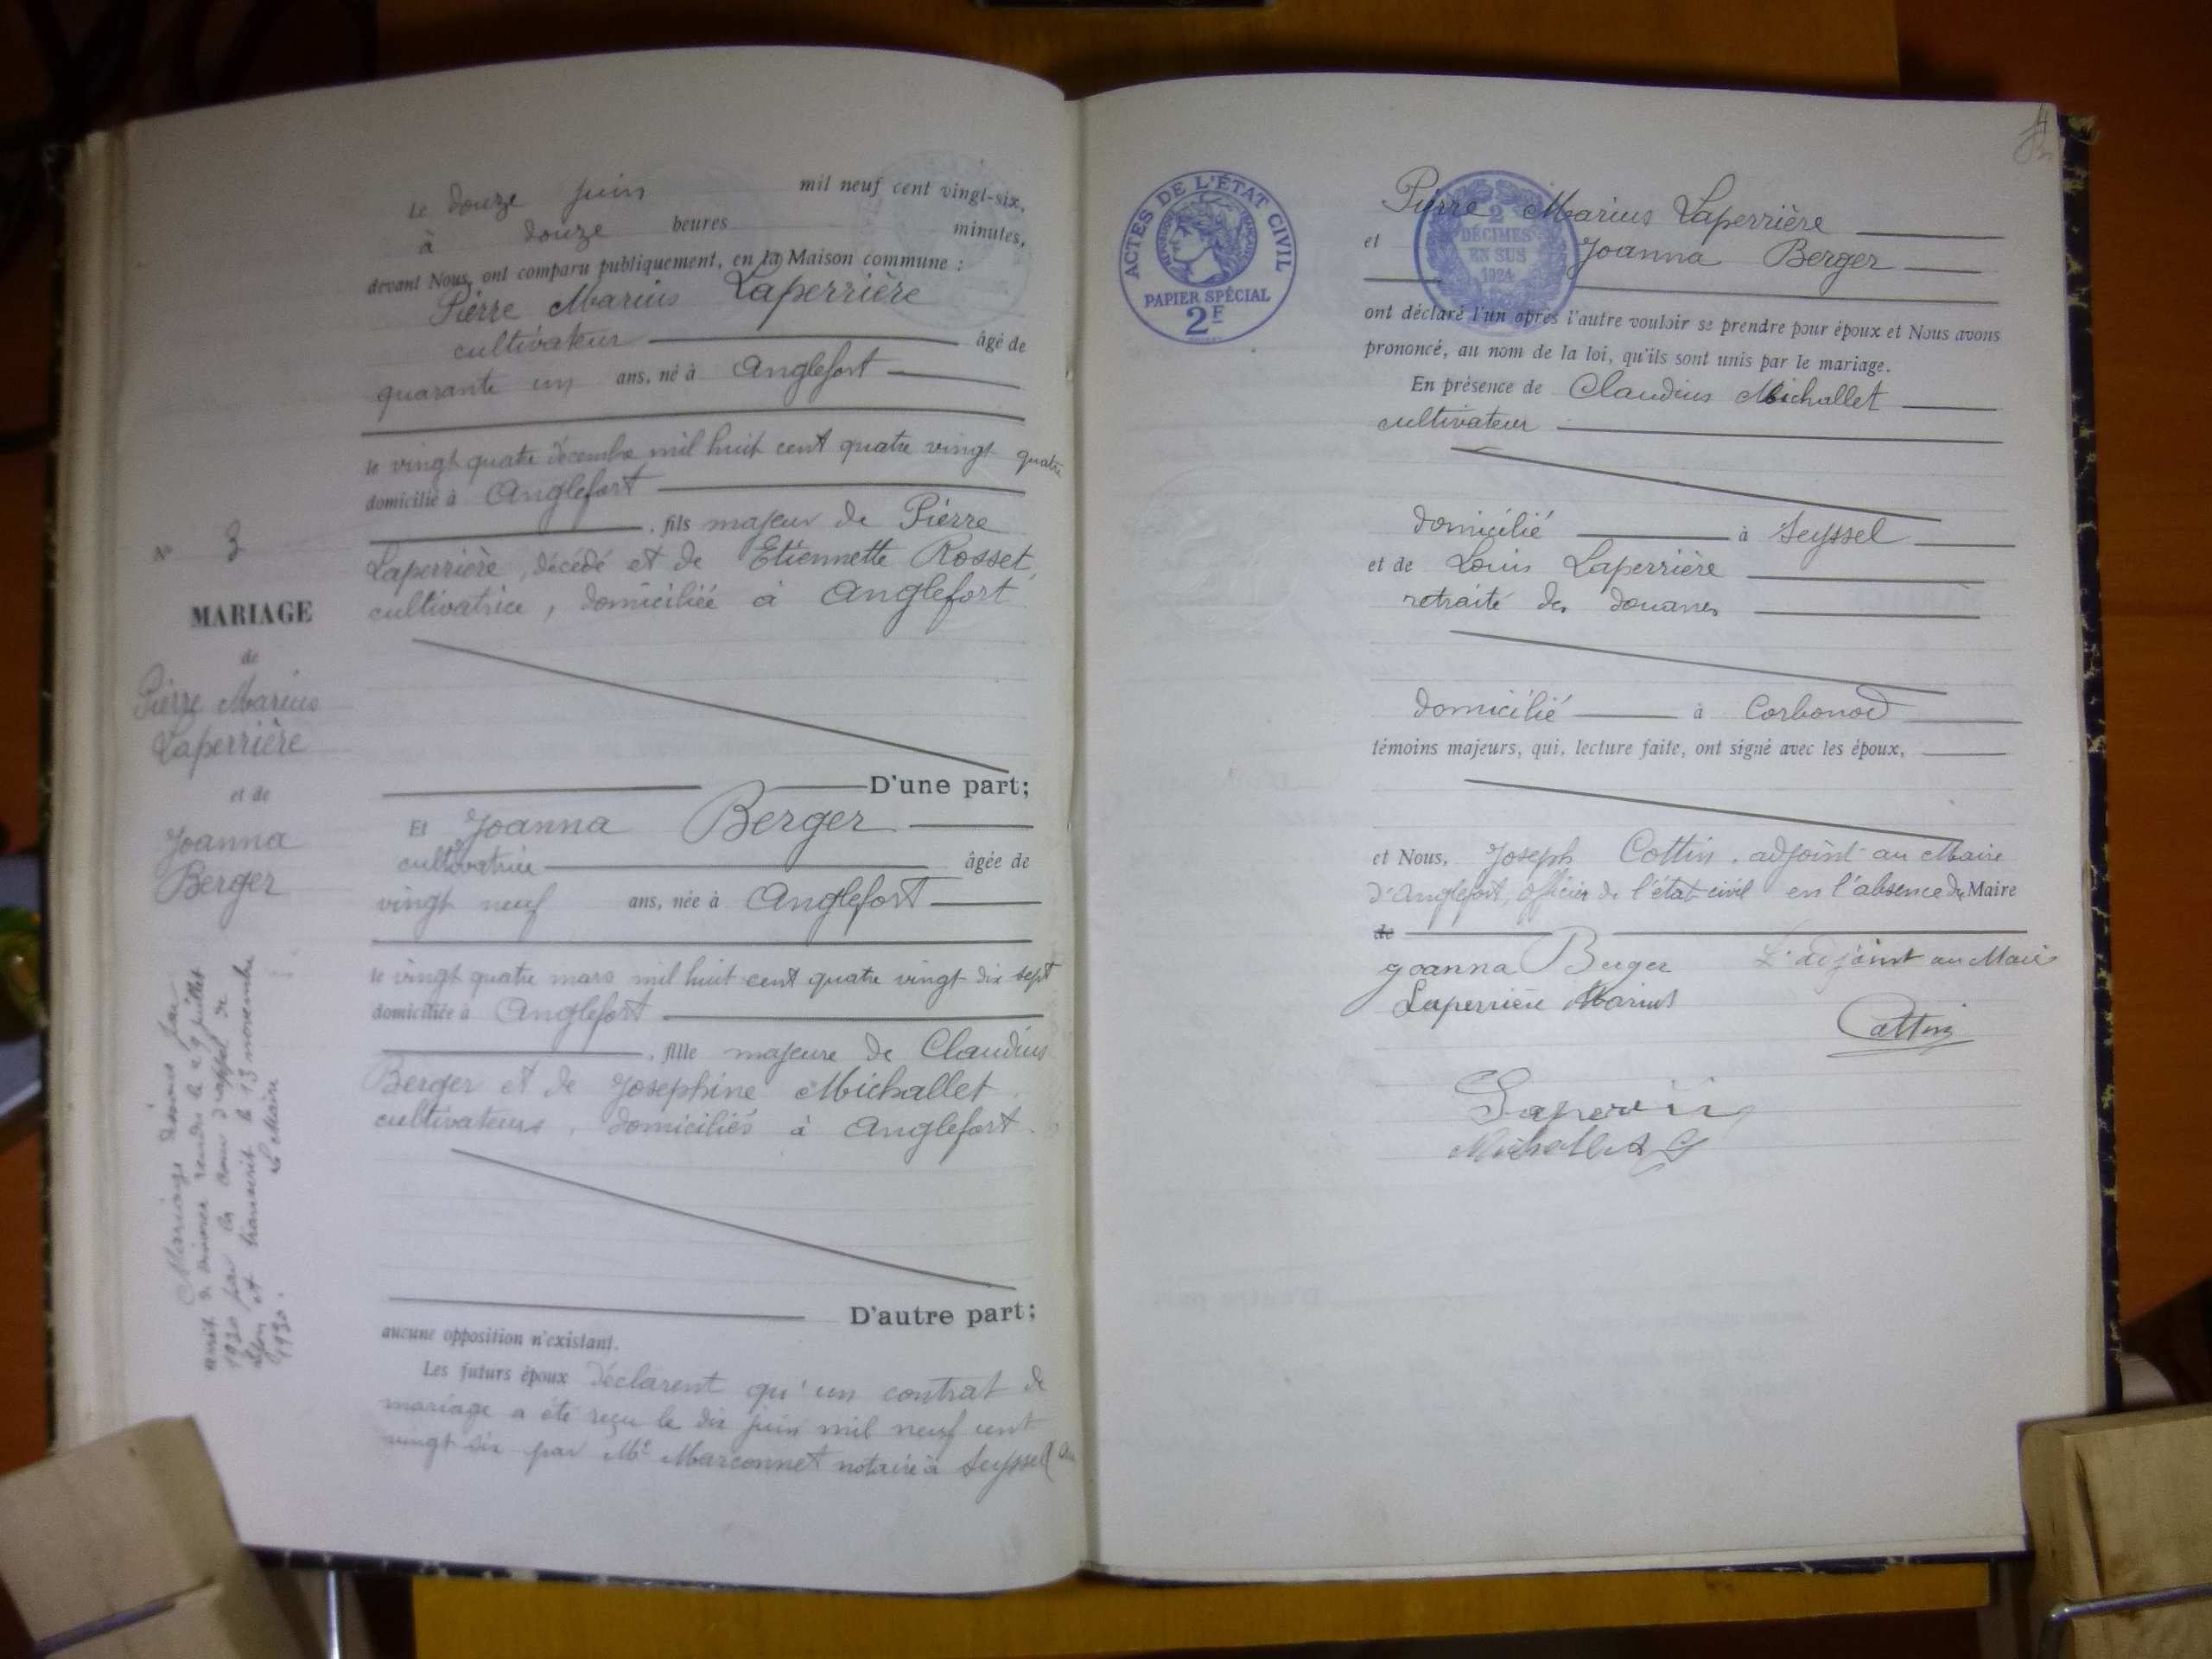 Le douze juin mil neuf cent vingt-six,
à douze heures minutes,
devant Nous, ont comparu publiquement, en la Maison commune :
Pierre Marius Laperrière
cultivateur âgé de
quarante un ans, né à Anglefort
le vingt quatre décembre mil huit cent quatre vingt quatre
domicilié à Anglefort
, fils majeur de Pierre
Laperrière, décédé et de Etiennette Rosset,
cultivatrice, domiciliée à Anglefort
D'une part;
Et Joanna Berger
cultivatrice âgée de
vingt neuf ans, née à Anglefort
le vingt quatre mars mil huit cent quatre vingt dix sept
domiciliée à Anglefort
, fille majeure de Claudius
Berger et de Joséphine Michallet
cultivateurs, domiciliés à Anglefort.
D'autre part;
aucune opposition n'existant.
Les futurs époux déclarent qu'un contrat de
mariage a été reçu le dix juin mil neuf cent
vingt six par Me Marconnet notaire à Seyssel (Ain
N° 3
MARIAGE
de
Pierre Marius
Laperrière
et de
Joanna
Berger
Mariage dissous par
arrêt de divorce rendu le 29 juillet
1930 par la cour d'appel de
Lyon et transcrit le 13 novembre
1930. Le Maire
ACTES DE L'ÉTAT CIVIL
PAPIER SPÉCIAL
2F
2
DÉCIMES
EN SUS
1924
Pierre Marius Laperrière
et Joanna Berger
ont déclaré l'un après l'autre vouloir se prendre pour époux et Nous avons
prononcé, au nom de la loi, qu'ils sont unis par le mariage.
En présence de Claudius Michallet
cultivateur
domicilié à Seyssel
et de Louis Laperrière
retraité des douanes
domicilié à Corbonod
témoins majeurs, qui, lecture faite, ont signé avec les époux,
et Nous, Joseph Cottin, adjoint au Maire
d'Anglefort, officier de l'état-civil en l'absence du Maire
de
Joanna Berger L'adjoint au Maire
Laperrière Marius
Cottin
Laperrière
Michallet C